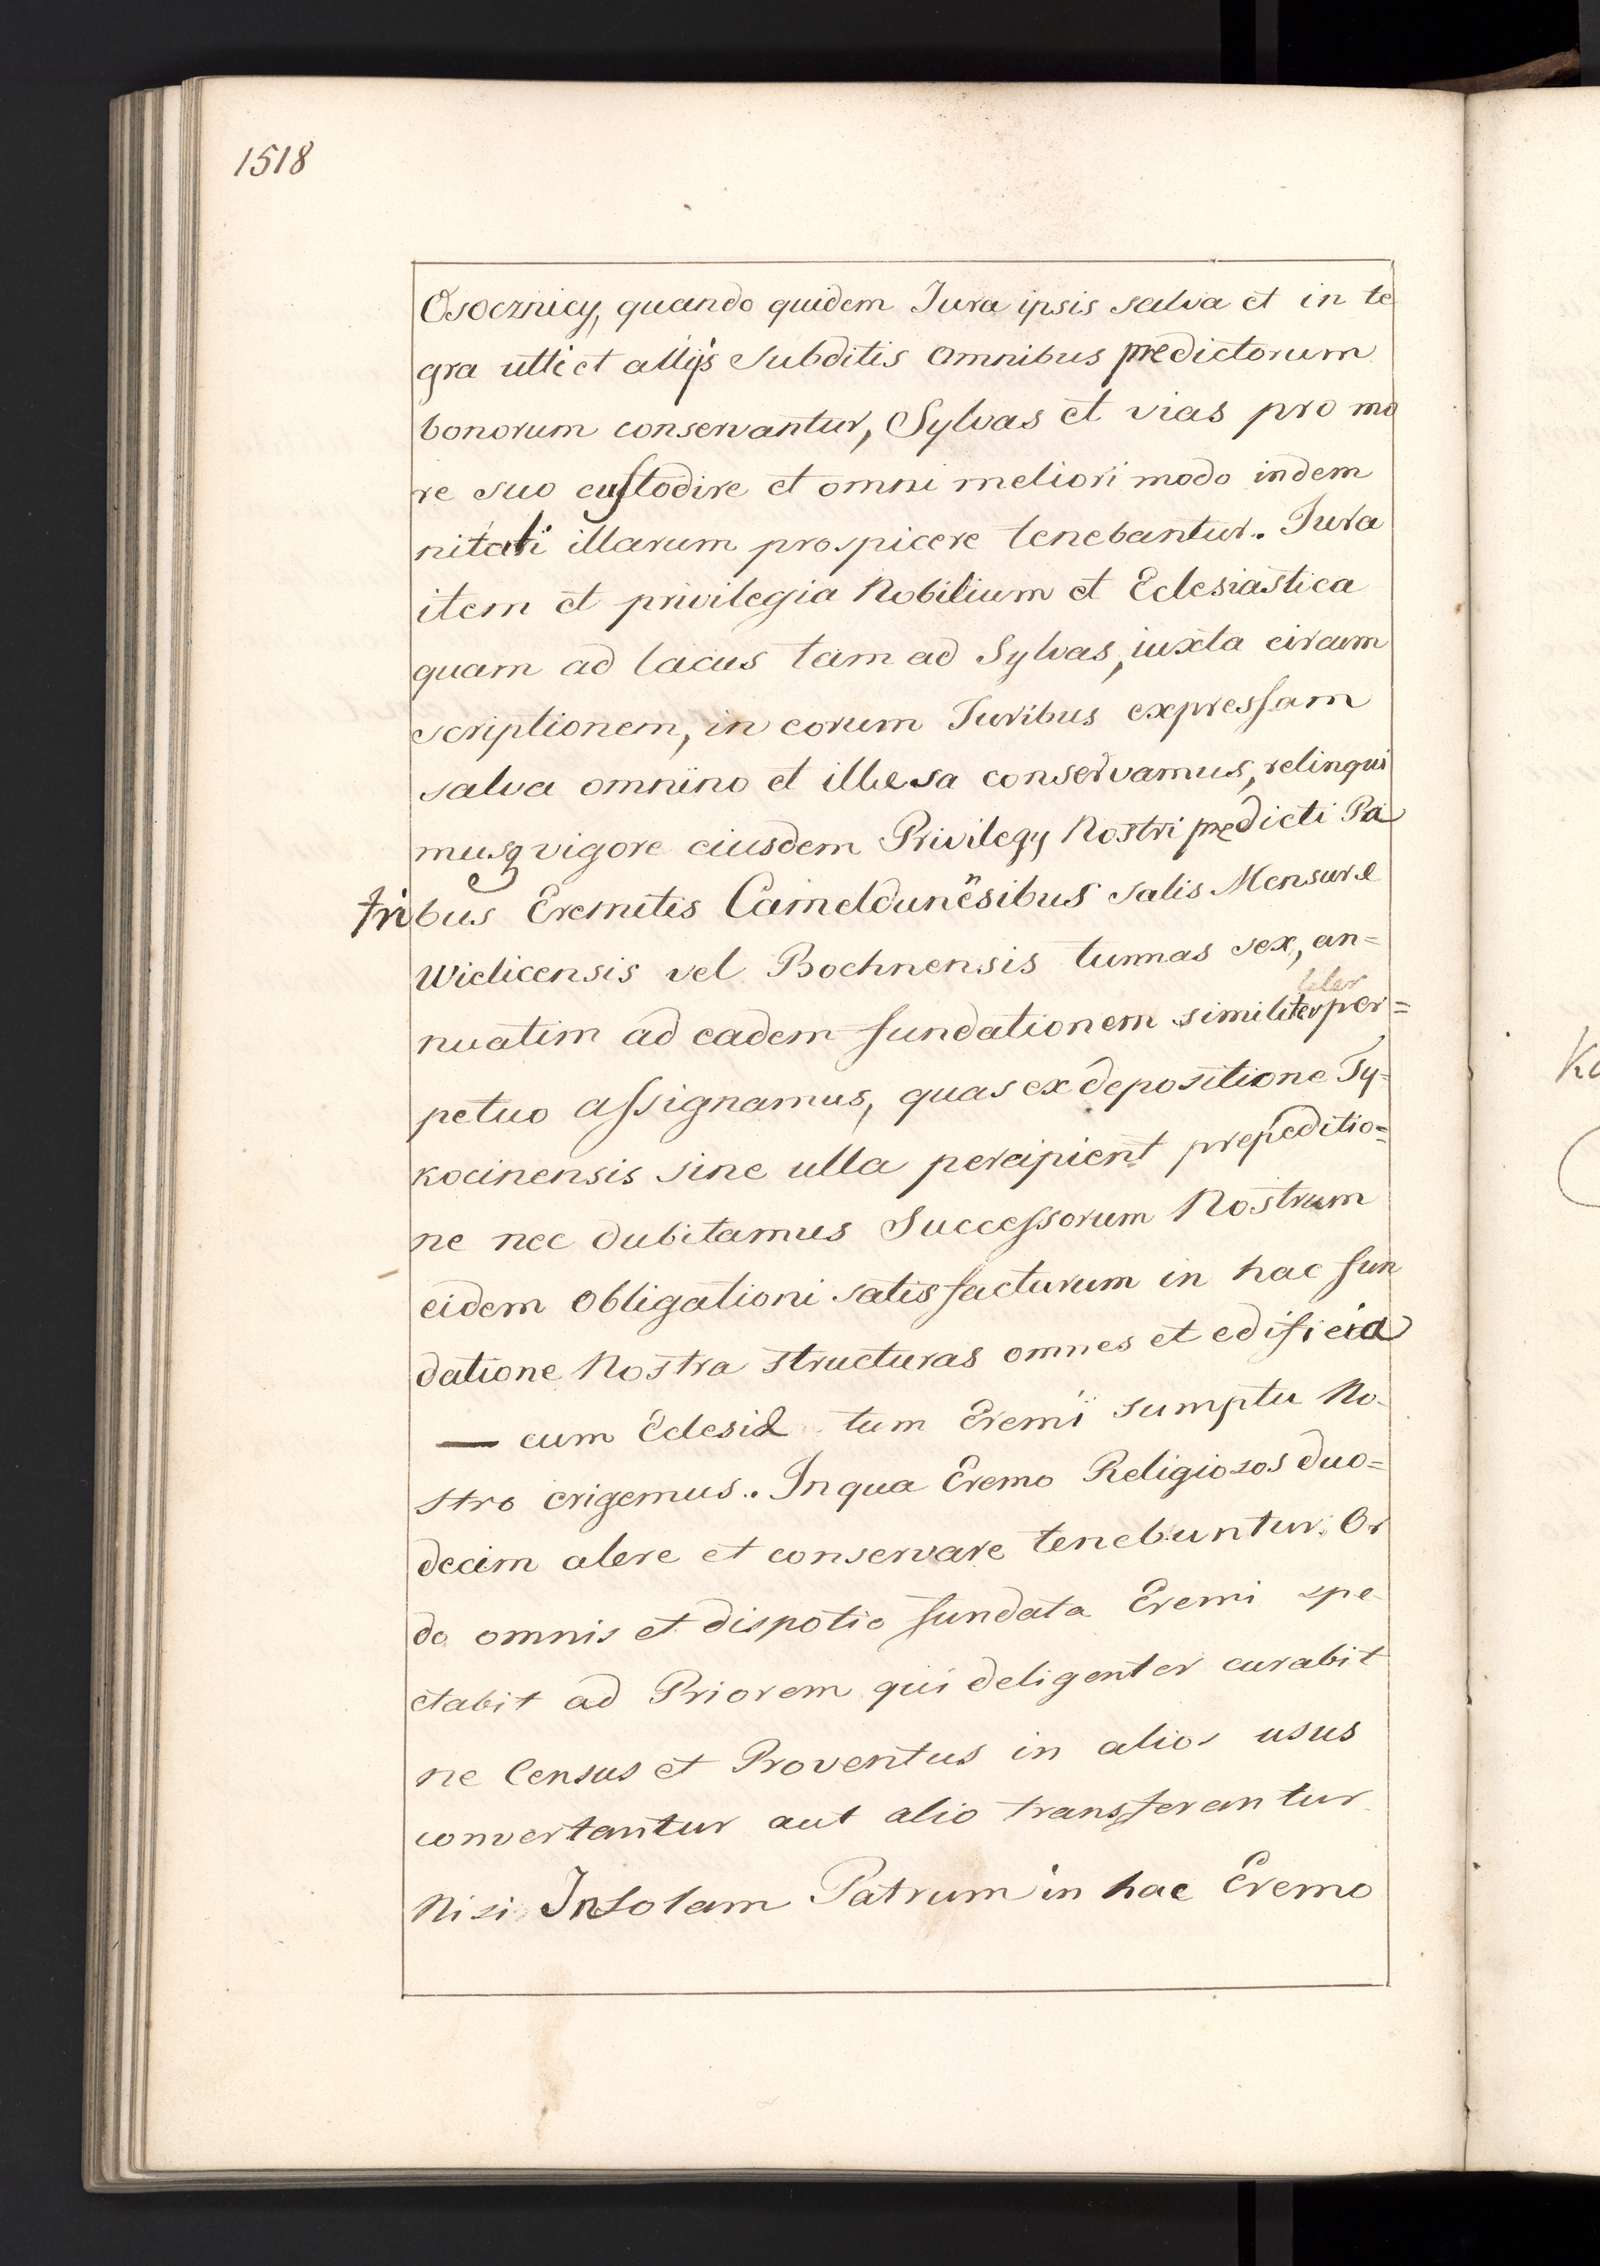 1518
Osocznicy, quando quidem Jura ipsis salva et in te
gra utti et allijs subditis omnibus predictorum
bonorum conservantur, Sylvas et vias pro mo
re suo custodire et omni meliori modo indem
nitati illarum prospicere tenebantur. Jura
item et privilegia Nobilium et Eclesiastica
quam ad lacus tam ad Sylvas, iuxta circum
scriptionem, in eorum Juribus expressam
salva omnino et illæsa conservamus, relinqui
musq vigore eiusdem Privilegy Nostri predicti Pa
tribus Eremitis Cameldunensibus salis Mensuræ
Wielicensis vel Bochnensis tunnas sex, an=
nuatim ad eadem fundationem similiter per=
petuo assignamus, quas ex depositione Ty=
kocinensis sine ulla percipient prepeditio=
ne nec dubitamus Successorum Nostrum
eidem obligationi satisfacturum in hac fun
datione Nostra structuras omnes et edificia
— cum Eclesiæ tum Eremi sumptu No-
stro erigemus. In qua Eremo Religiosos duo=
decim alere et conservare tenebuntur. Or
do omnis et dispotio fundata Eremi spe
ctabit ad Priorem qui deligenter curabit
ne Census et Proventus in alios usus
convertantur aut alio transferantur
Nisi In solam Patrum in hac Eremo